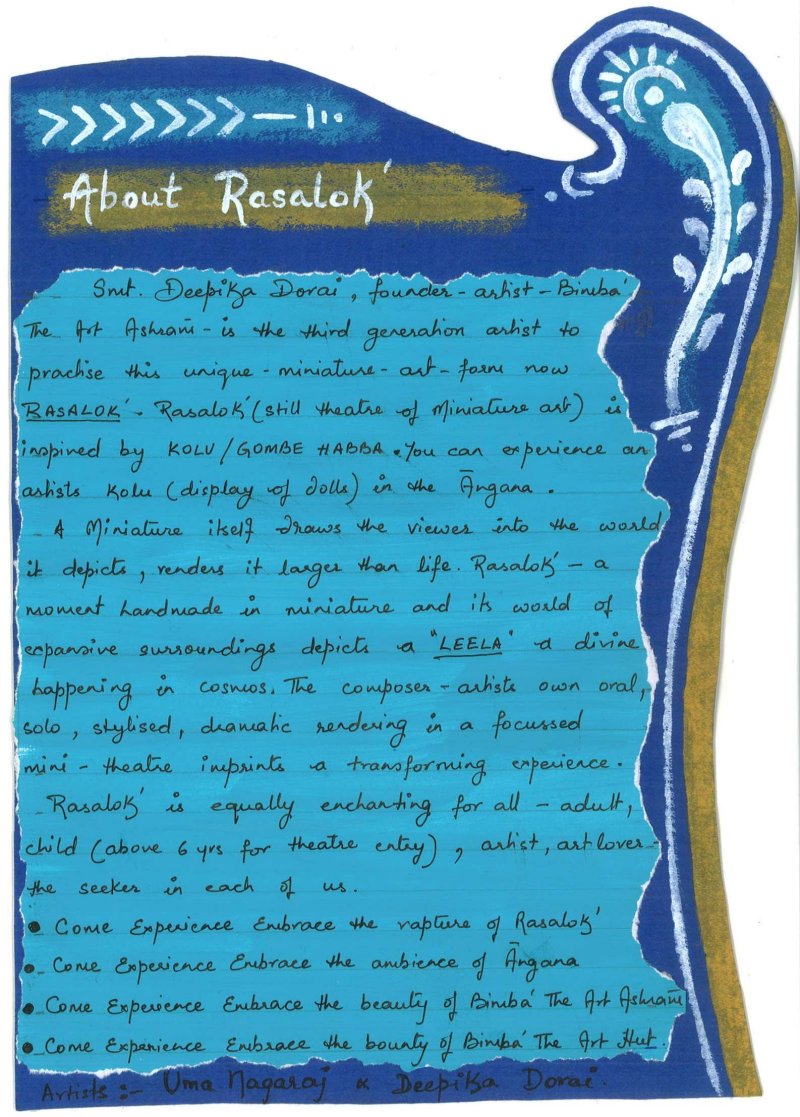 About Rasalok'
Smt. Deepika Dorai, founder-artist-Bimba'
The Art Ashram̄ - is the third generation artist to
practise this unique-miniature-art-form now
RASALOK'. Rasalok' (still theatre of Miniature art) is
inspired by KOLU/GOMBE HABBA. You can experience an
artists Kolu (display of dolls) in the Āngana.
A Miniature itself draws the viewer into the world
it depicts, renders it larger than life. Rasalok' - a
moment handmade in miniature and its world of
expansive surroundings depicts a "LEELA" a divine
happening in cosmos. The composer-artists own oral,
solo, stylised, dramatic rendering in a focussed
mini-theatre imprints a transforming experience.
Rasalok' is equally enchanting for all - adult,
child (above 6 yrs for theatre entry), artist, art lover-
the seeker in each of us.
• Come Experience Embrace the rapture of Rasalok'
• Come Experience Embrace the ambience of Āngana
• Come Experience Embrace the beauty of Bimba' The Art Ashram̄
• Come Experience Embrace the bounty of Bimba' The Art Hut.
Artists :- Uma Nagaraj & Deepika Dorai.